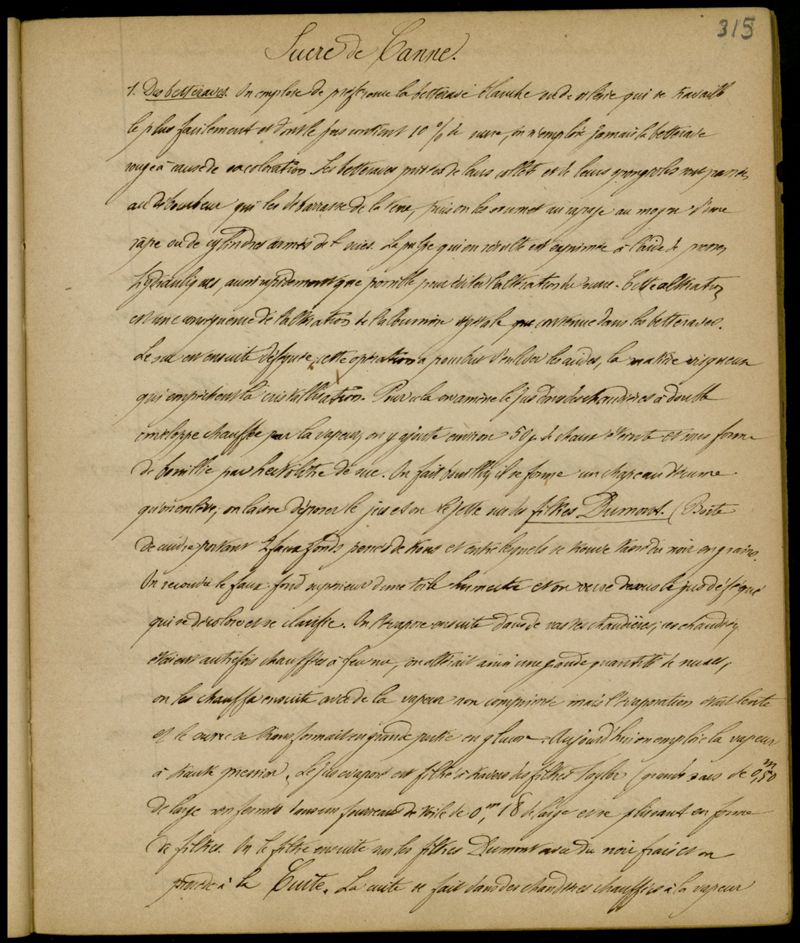 315
Sucre de Canne.
1. Des betteraves. On emploie de préférence la betterave blanche ou de Silésie qui se travaille
le plus facilement et dont le jus contient 10 % de sucre, on n'emploie jamais la betterave
rouge à cause de sa coloration. Les betteraves privées de leurs collets et de leurs sont passées
au débourbeur qui les débarrasse de la terre, puis on les soumet au rapage au moyen d'une
râpe ou de cylindres armés de scies. La pulpe qui en résulte est exprimée à l'aide de presses
hydrauliques, aussi rapidement que possible pour éviter l'altération du sucre. Cette altération
est une conséquence de l'altération de l'albumine végétale contenue dans les betteraves.
Le suc est ensuite déféqué, cette opération a pour but d'enlever les acides, la matière visqueuse
qui empêchent la cristallisation. Pour cela on amène le jus dans des chaudières à double
enveloppe chauffée par la vapeur, on y ajoute environ 50g de chaux éteinte et sous forme
de bouillie par hectolitre de suc. On fait bouillir, il se forme un chapeau d'écume
qu'on enlève, on laisse déposer le jus et on le jette sur des filtres Dumont. (Boite
de cuivre portant 2 faux fonds percés de trous et entre lesquels se trouve du noir en grains.
On recouvre le faux-fond supérieur d'une toile humectée et on verse dessus le jus déféqué
qui se décolore et se clarifie. On évapore ensuite dans de vastes chaudières, ces chaudières
étaient autrefois chauffées à feu nu, on altérait ainsi une grande quantité de sucre,
on les chauffa ensuite avec de la vapeur non comprimée mais l'évaporation était lente
et le sucre se transformait en grande partie en glucose. Aujourd'hui on emploie la vapeur
à haute pression. Le jus évaporé est filtré à travers des filtres Taylor (grands sacs de 0,m50
de large renfermés dans un fourreau de toile de 0,m18 de large et se plissant en forme
de filtres. On le filtre ensuite sur les filtres Dumont avec du noir frais et on
procède à la Cuite. La cuite se fait dans des chaudières chauffées à la vapeur